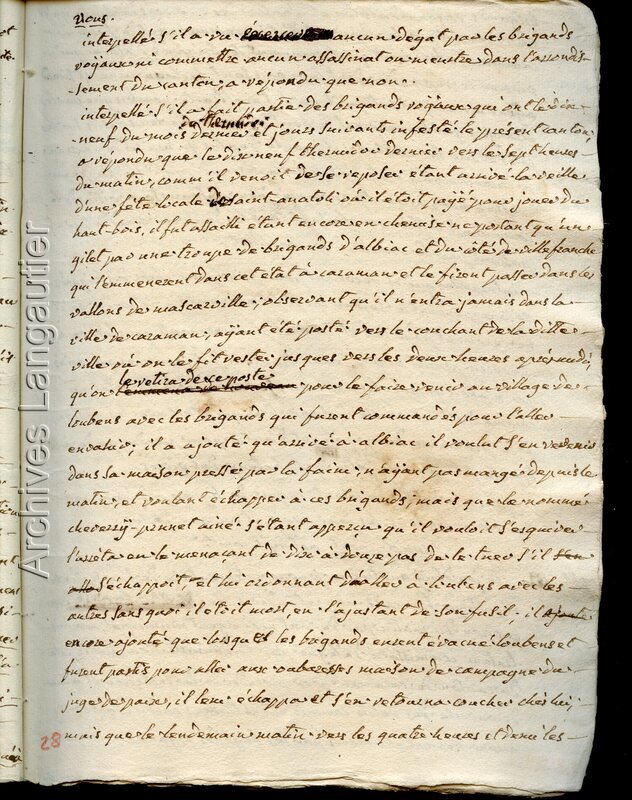 nous.
interpellé s'il a vu aucun dégat par les brigands
royaux ni commettre aucun assassinat ou meurtre dans l'arrondis-
sement du canton, a répondu que non.
interpellé s'il a fait partie des brigands royaux qui ont le dix
neuf du mois dernier du thermidor et jours suivants infesté le présent canton,
a répondu que le dix neuf thermidor dernier vers le sept heures
du matin, comm'il venoit de se reposer etant arrivé la veille
d'une fête locale de saint anatoli où il étoit payé pour jouer du
haut-bois, il fut assailli étant encore en chemise ne portant qu'un
gilet par une troupe de brigands d'albiac et du côté de villefranche
qui l'emmenerent dans cet état a caraman et le firent passer dans les
vallons de mascarville; observant qu'il n'entra jamais dans la
ville de caraman, ayant été posté vers le couchant de la ditte
ville où on le fit rester jusques vers les deux heures aprés midi,
qu'on le retira de ce poste pour le faire venir au village de
loubens avec les brigands qui furent commandés pour l'aller
envahir; il a ajouté qu'arrivé à albiac il voulut s'en revenir
dans sa maison pressé par la faim, n'ayant pas mangé depuis le
matin, et voulant échapper à ces brigands; mais que le nommé
cheverry-prunet ainé s'étant apperçu qu'il vouloit s'esquiver
l'arrêta en le menaçant de dix à douze pas de le tuer s'il s'en
alloit s'échappoit et lui ordonnant d'aller à loubens avec les
autres sans quoi il étoit mort, en l'ajustant de son fusil; il ajouté
encore ajouté que lorsque les brigands eurent évacué loubens et
furent partis pour aller aux cabaresses maison de campagne du
juge de paix, il leur échappa et s'en retourna coucher chés lui;
mais que le lendemain matin vers les quatre heures et demi les
28
Archives Langautier